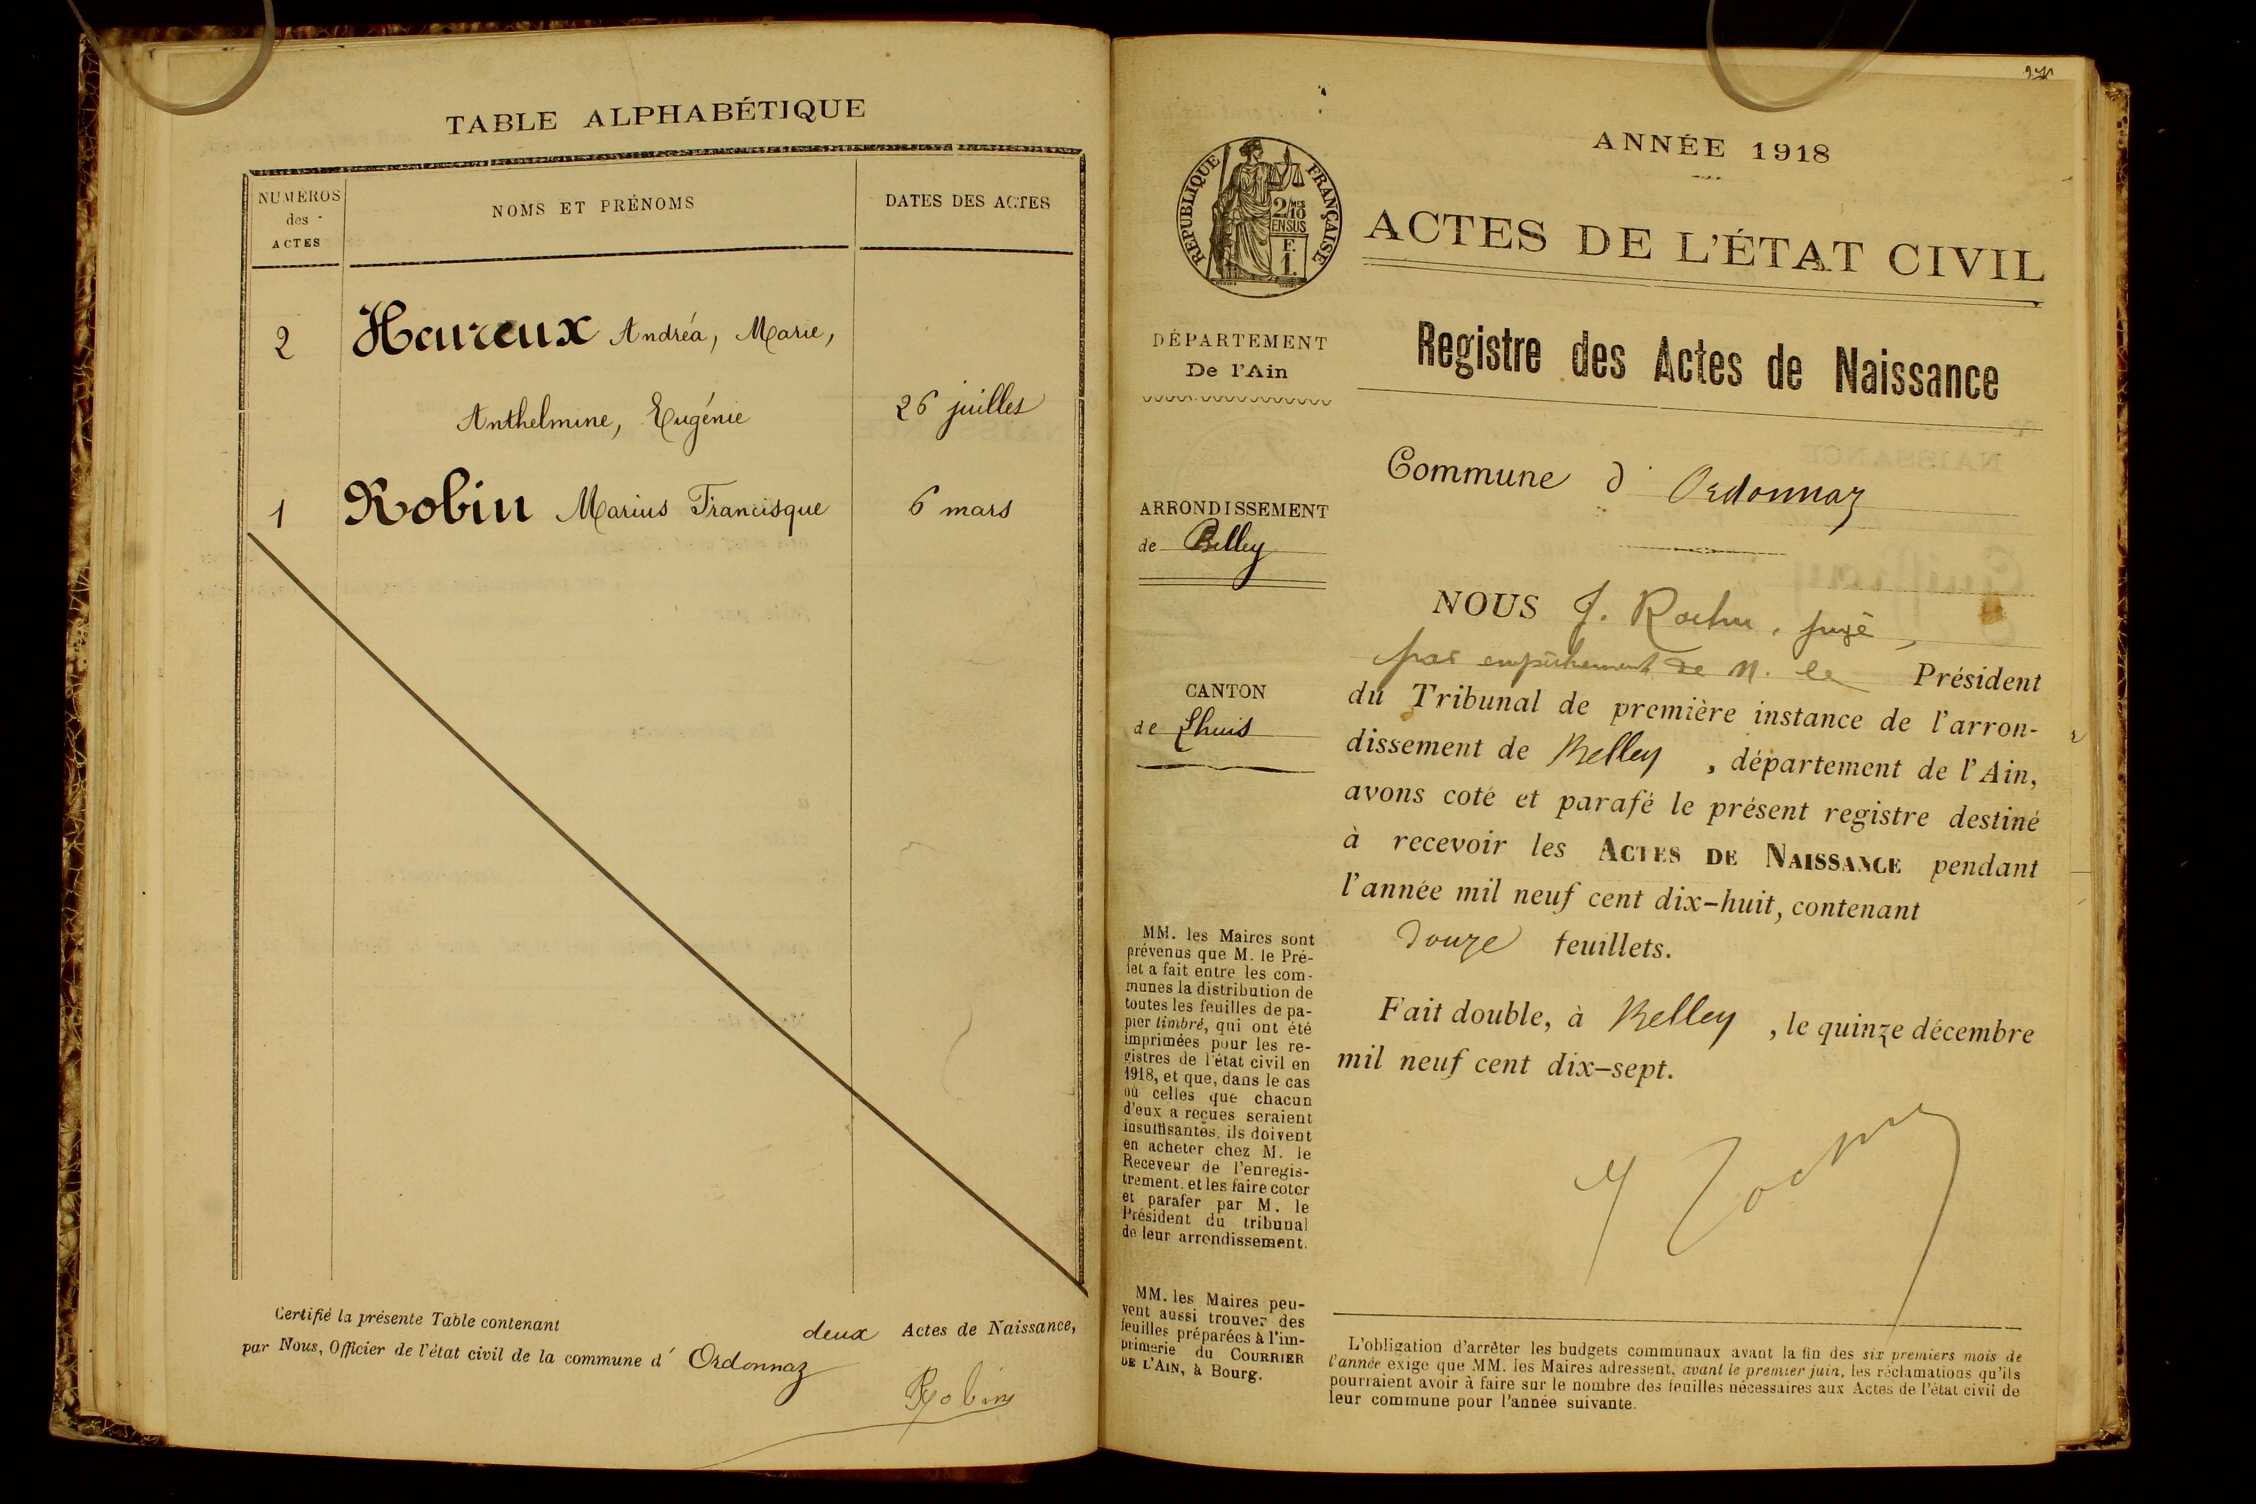 TABLE ALPHABÉTIQUE
NUMÉROS
des
ACTES
NOMS ET PRÉNOMS
DATES DES ACTES
2 Heureux Andréa, Marie,
Anthelmine, Eugénie 26 juillet
1 Robin Marius Francisque 6 mars
Certifié la présente Table contenant deux Actes de Naissance,
par Nous, Officier de l'état civil de la commune d' Ordonnaz
Robin
ANNÉE 1918
RÉPUBLIQUE FRANÇAISE
2/10
EN SUS
F.
1.
ACTES DE L'ÉTAT CIVIL
DÉPARTEMENT
De l'Ain
ARRONDISSEMENT
de Belley
CANTON
de Lhuis
MM. les Maires sont
prévenus que M. le Pré-
fet a fait entre les com-
munes la distribution de
toutes les feuilles de pa-
pier timbré, qui ont été
imprimées pour les re-
gistres de l'état civil en
1918, et que, dans le cas
où celles que chacun
d'eux a reçues seraient
insuffisantes, ils doivent
en acheter chez M. le
Receveur de l'enregis-
trement. et les faire coter
et parafer par M. le
Président du tribunal
de leur arrondissement.
MM. les Maires peu-
vent aussi trouver des
feuilles préparées à l'im-
primerie du COURRIER
DE L'AIN, à Bourg.
Registre des Actes de Naissance
Commune d' Ordonnaz
NOUS J. , juge,
par empêchement de M. le Président
du Tribunal de première instance de l'arron-
dissement de Belley , département de l'Ain,
avons coté et parafé le présent registre destiné
à recevoir les ACTES DE NAISSANCE pendant
l'année mil neuf cent dix-huit, contenant
douze feuillets.
Fait double, à Belley , le quinze décembre
mil neuf cent dix-sept.
L'obligation d'arrêter les budgets communaux avant la fin des six premiers mois de
l'année exige que MM. les Maires adressent, avant le premier juin, les réclamations qu'ils
pourraient avoir à faire sur le nombre des feuilles nécessaires aux Actes de l'état civil de
leur commune pour l'année suivante.